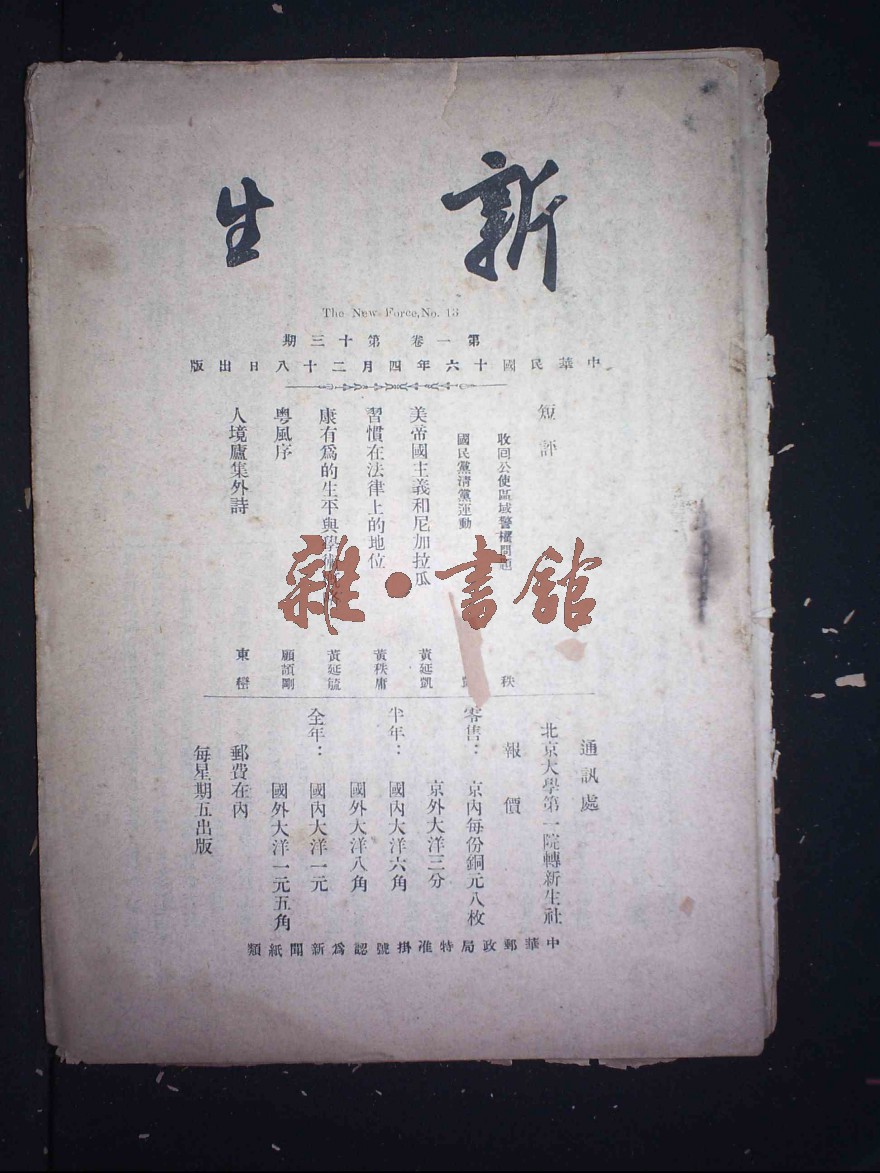 新生
The New Force, No. 13
第一卷 第十三期
中華民國十六年四月二十八日出版
短評
收回公使區域警權問題 秩
國民黨清黨運動
美帝國主義和尼加拉瓜 黃延凱
習慣在法律上的地位 黃秩庸
康有爲的生平與學術 黃延毓
粵風序 顧頡剛
人境廬集外詩 東
雜·書館
通訊處
北京大學第一院轉新生社
報價
零售：京內每份銅元八枚
京外大洋三分
半年：國內大洋六角
國外大洋八角
全年：國內大洋一元
國外大洋一元五角
郵費在內
每星期五出版
中華郵政局特准掛號認爲新聞紙類